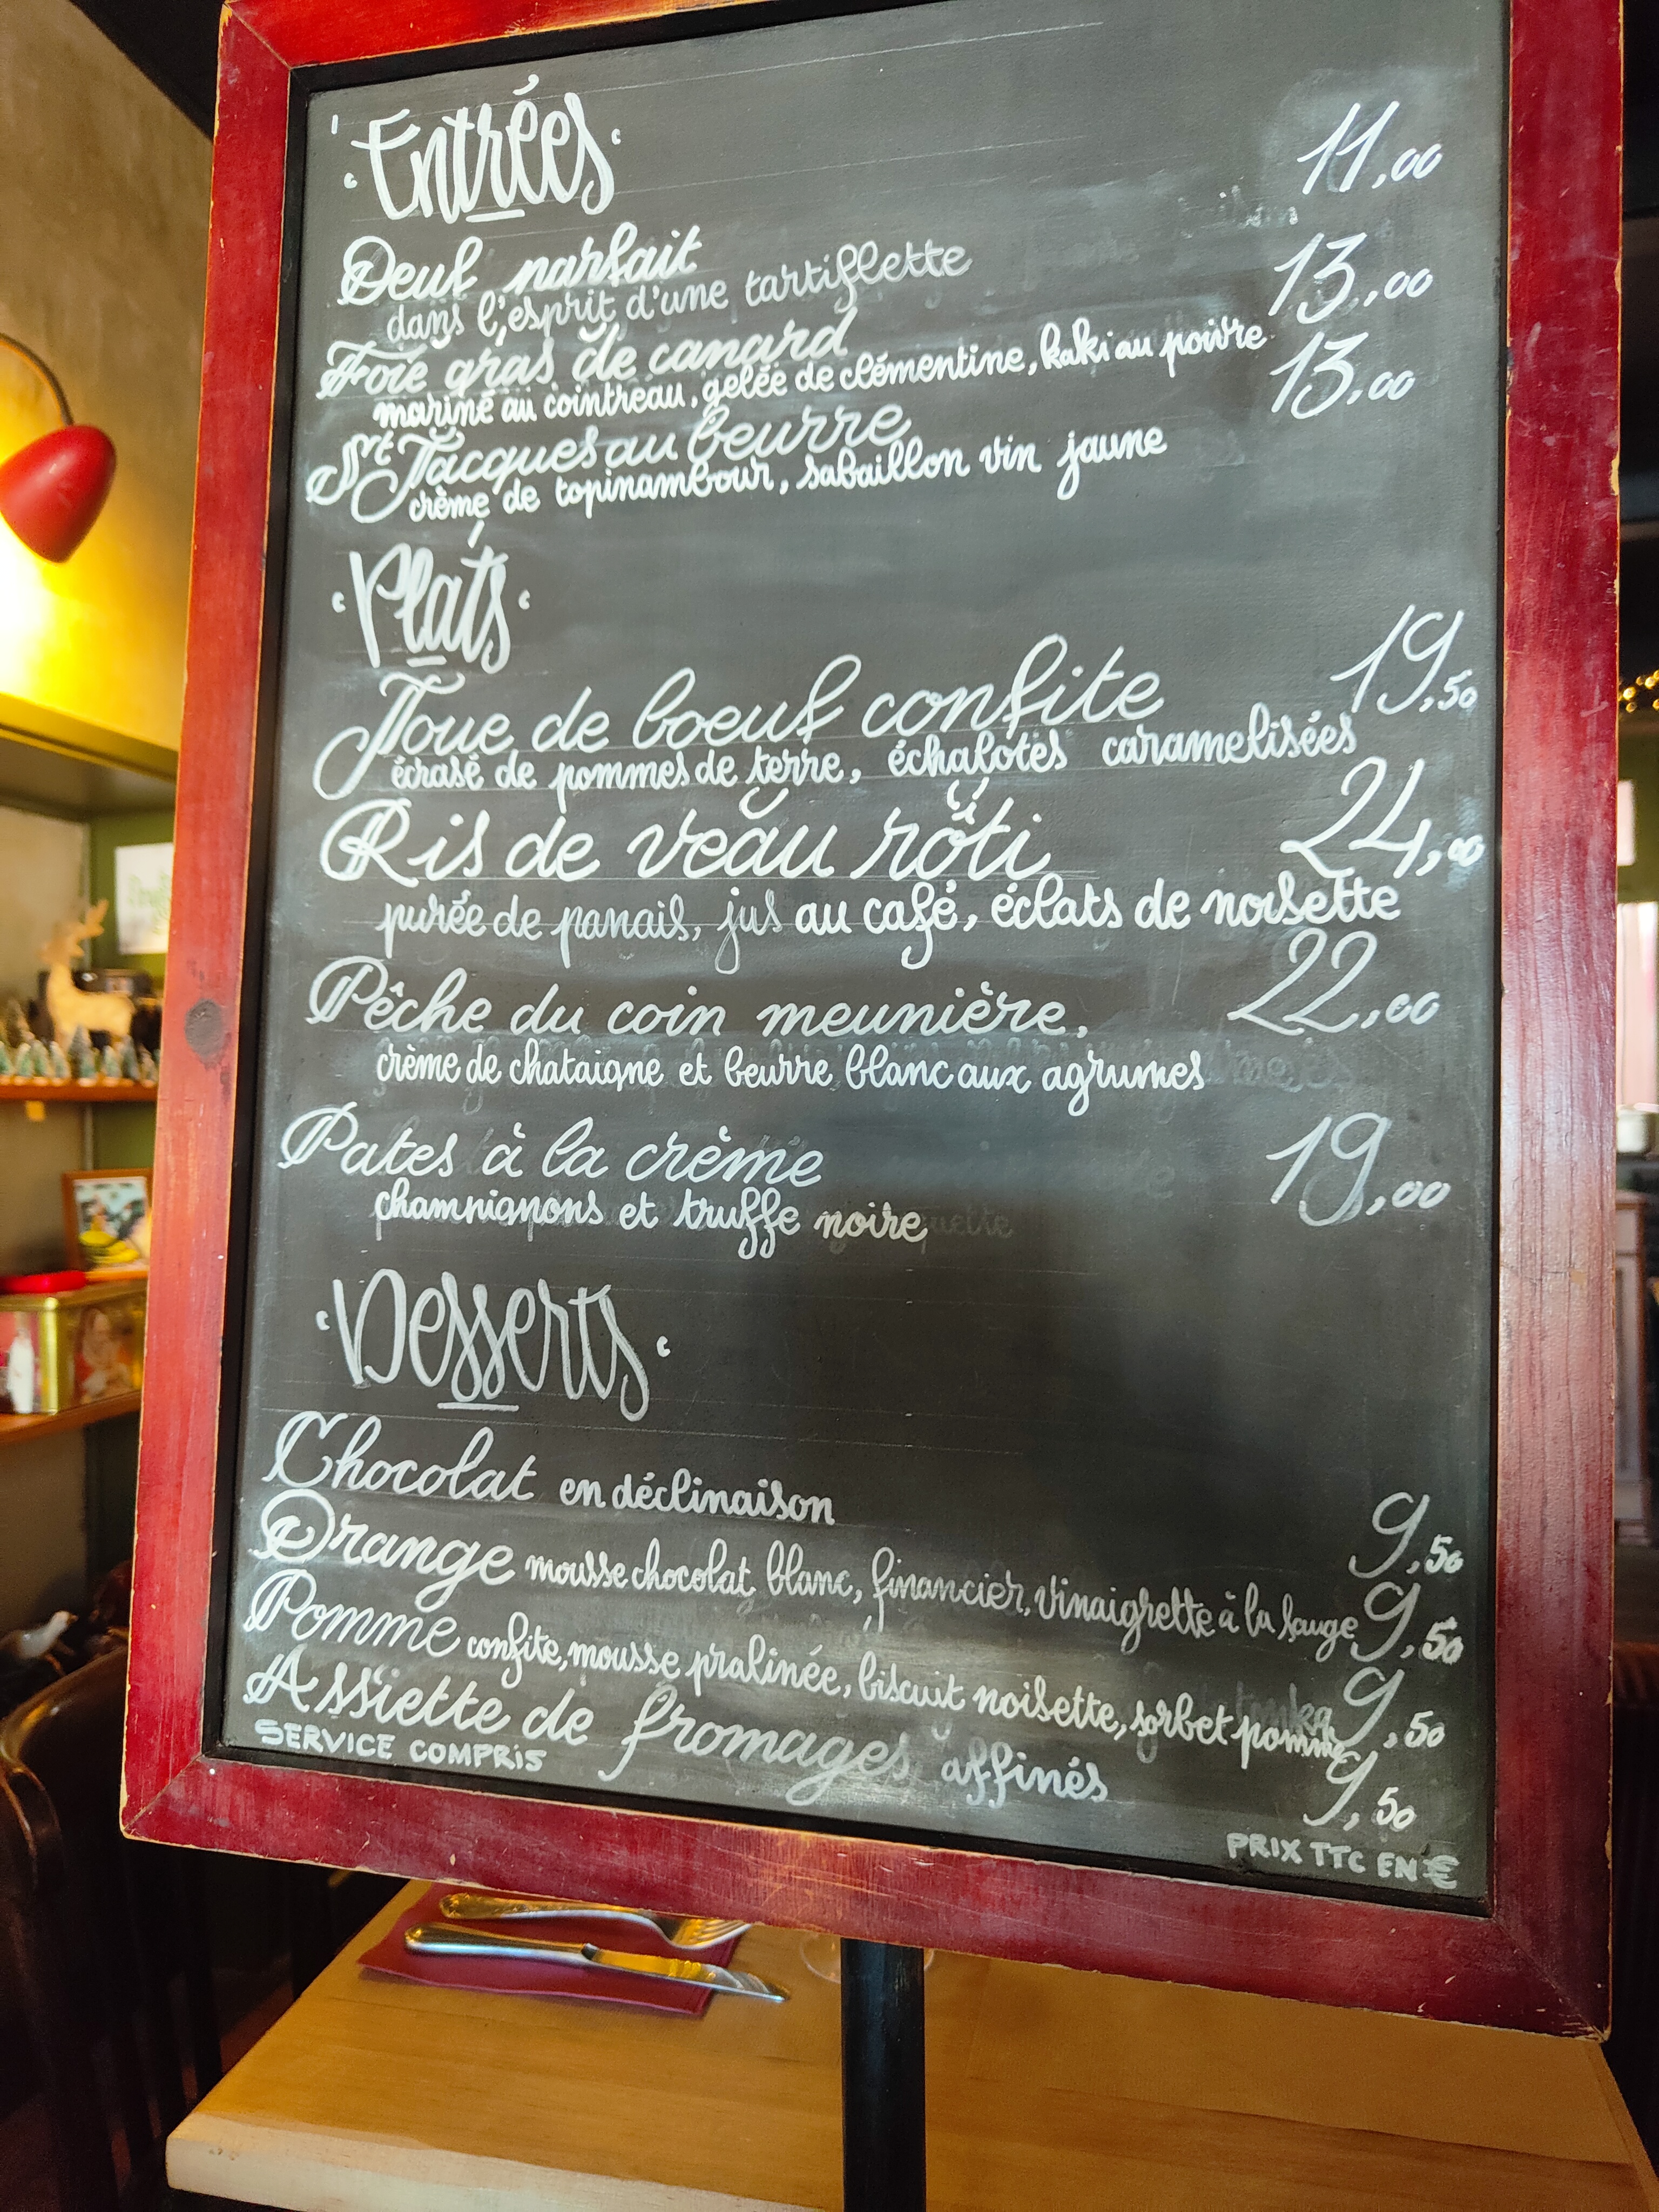 Entrées
Oeuf parfait 11,00
dans l'esprit d'une tartiflette
Foie gras de canard 13,00
mariné au cointreau, gelée de clémentine, kaki au poivre
St Jacques au beurre 13,00
crème de topinambour, sabaillon vin jaune
Plats
Joue de boeuf confite 19,50
écrasé de pommes de terre, échalotes caramelisées
Ris de veau rôti 24,00
purée de panais, jus au café, éclats de noisette
Pêche du coin meunière, 22,00
crème de chataigne et beurre blanc aux agrumes
Pates à la crème 19,00
champignons et truffe noire
Desserts
Chocolat en déclinaison 9,50
Orange mousse chocolat blanc, financier, vinaigrette à la sauge 9,50
Pomme confite, mousse pralinée, biscuit noisette, sorbet pomme 9,50
Assiette de fromages affinés 9,50
SERVICE COMPRIS
PRIX TTC EN €